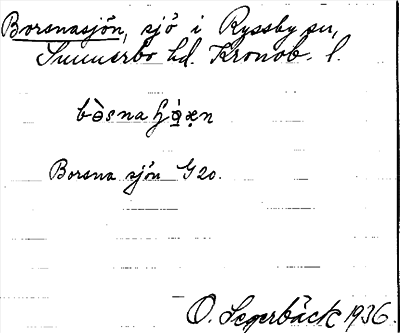 Borsnasjön, sjö i Ryssby sn,
Sunnerbo hd. Kronob. l.
Borsna sjön G20.
O. Segerbäck 1936.